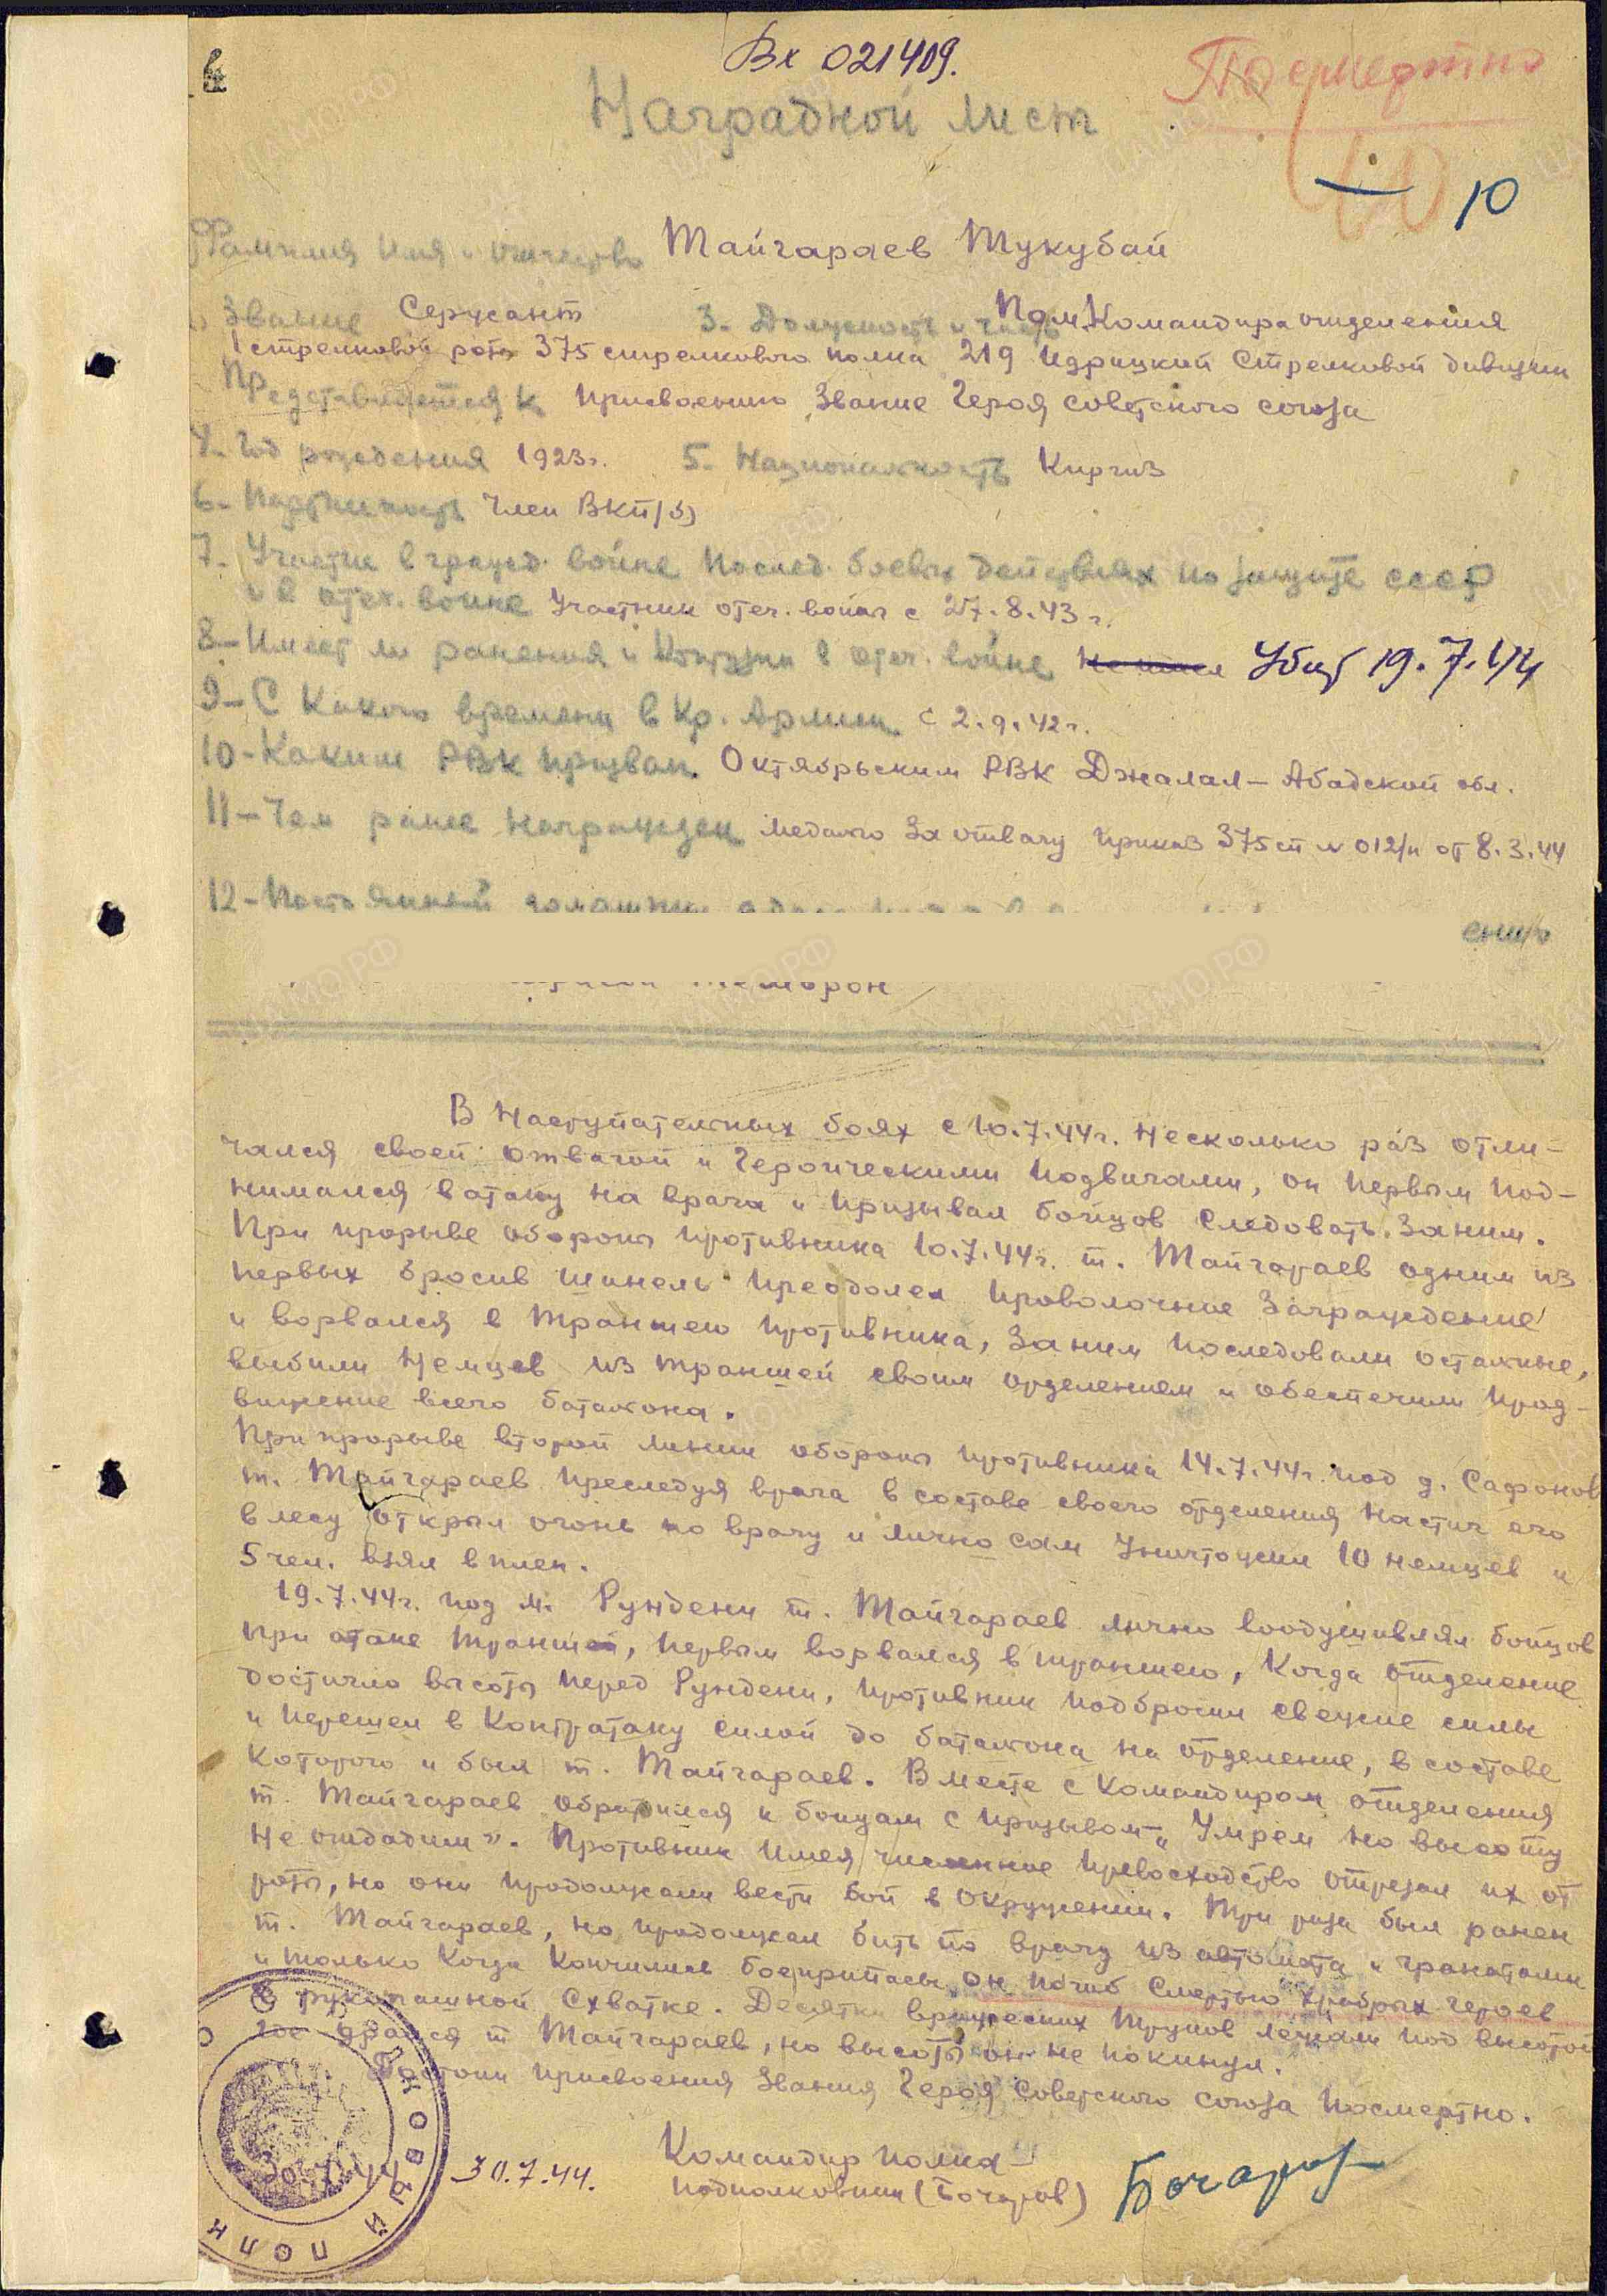 4
Вх 021409.
Посмертно
Наградной лист
10
Фамилия Имя и отчество Тайгараев Тукубай
Звание Сержант 3. Должность и часть Пом. Командира отделения
1 стрелковой роты 375 стрелкового полка 219 Идрицкой Стрелковой дивизии
Представляется к присвоению Звание Героя советского союза
4. Год рождения 1923г. 5. Национальность Киргиз
6- Партийность Член ВКП/б)
7. Участие в гражд. войне послед. боевых действиях по защите СССР
и в отеч. войне Участник отеч. войны с 27.8.43 г.
8- Имеет ли ранения и контузии в отеч. войне Убит 19.7.44
9- С какого времени в Кр. Армии с 2.9.42г.
10- Каким РВК призван Октябрьским РВК Джалал-Абадской обл.
11- Чем ранее награжден медалью За отвагу приказ 375 сп № 012/н от 8.3.44
12- Постоянный домашний адрес
Темирон
В наступательных боях с 10.7.44г. несколько раз отли-
чался своей отвагой и героическими подвигами, он первым под-
нимался в атаку на врага и призывал бойцов следовать за ним.
При прорыве обороны противника 10.7.44г. т. Тайгараев одним из
первых бросив шинель преодолел проволочные заграждение
и ворвался в траншею противника, за ним последовали остальные,
выбили немцев из траншей своим отделением и обеспечили прод-
вижение всего батальона.
При прорыве второй линии обороны противника 14.7.44г. под д. Сафонов
т. Тайгараев преследуя врага в составе своего отделения настиг его
в лесу открыл огонь по врагу и лично сам уничтожил 10 немцев и
5 чел. взял в плен.
19.7.44г. под м. Рундени т. Тайгараев лично воодушевлял бойцов
при атаке траншей, первым ворвался в траншею, когда отделение
достигло высоты перед Рундени, противник подбросил свежие силы
и перешел в контратаку силой до батальона на отделение, в составе
которого и был т. Тайгараев. Вместе с командиром отделения
т. Тайгараев обратился к бойцам с призывом- „Умрем но высоту
не отдадим". Противник имея численное превосходство отрезал их от
роты, но они продолжали вести бой в окружении. Три раза был ранен
т. Тайгараев, но продолжал бить по врагу из автомата и гранатами
и только когда кончились боеприпасы он погиб смертью храбрых героев
в рукопашной схватке. Десятки вражеских трупов лежали под высотой
где дрался т Тайгараев, но высоты он не покинул.
Достоин присвоения Звания Героя Советского союза посмертно.
Командир полка
30.7.44. подполковник (Бочаров) Бочаров